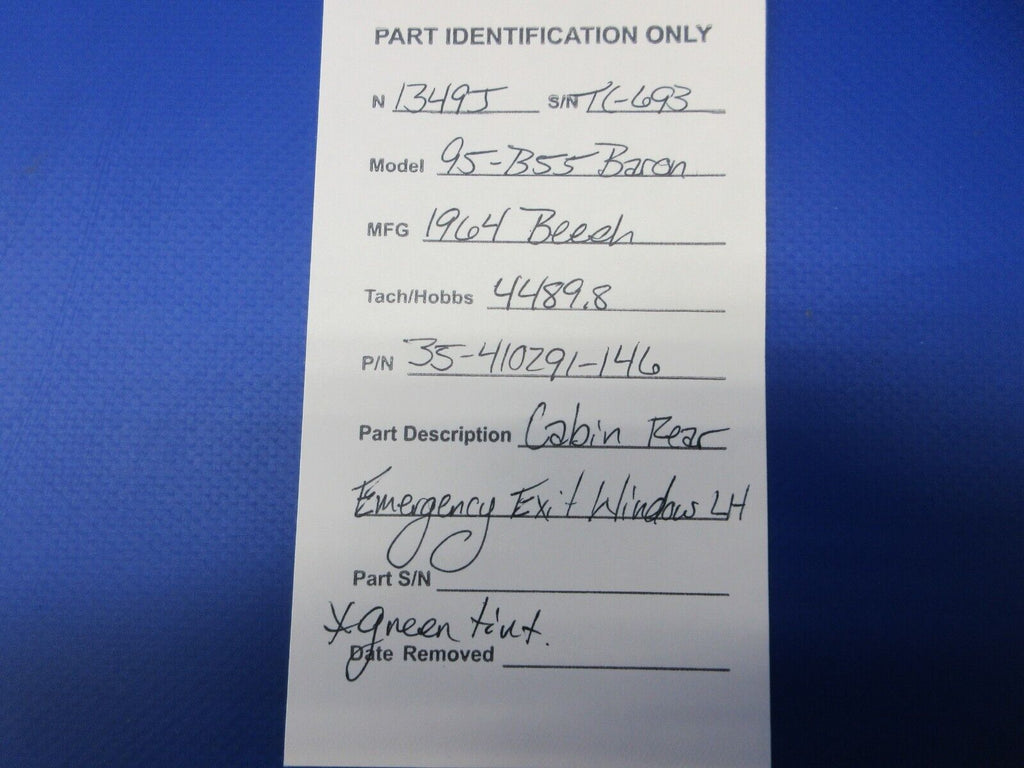 PART IDENTIFICATION ONLY
N 1349J S/N TC-693
Model 95-B55 Baron
MFG 1964 Beech
Tach/Hobbs 4489.8
P/N 35-410291-146
Part Description Cabin Rear
Emergency Exit Window LH
Part S/N
*green tint.
Date Removed